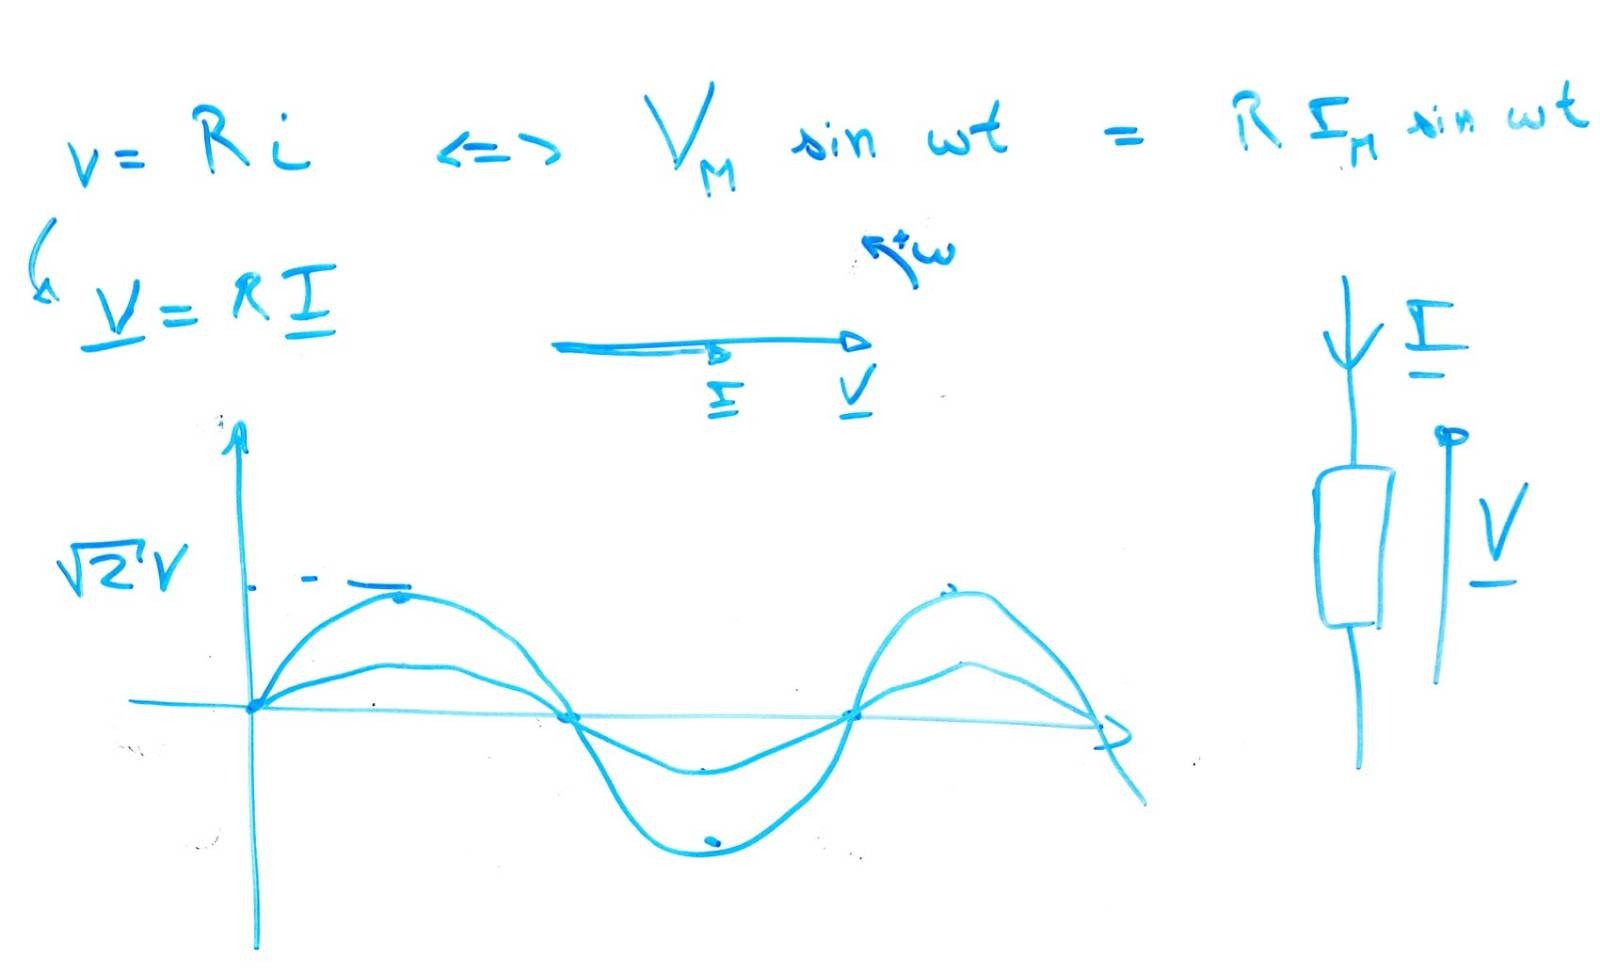 v = R i <=> V_M sin ωt = R I_M sin ωt
+ω
V = R I
I
I V
√2 V
V